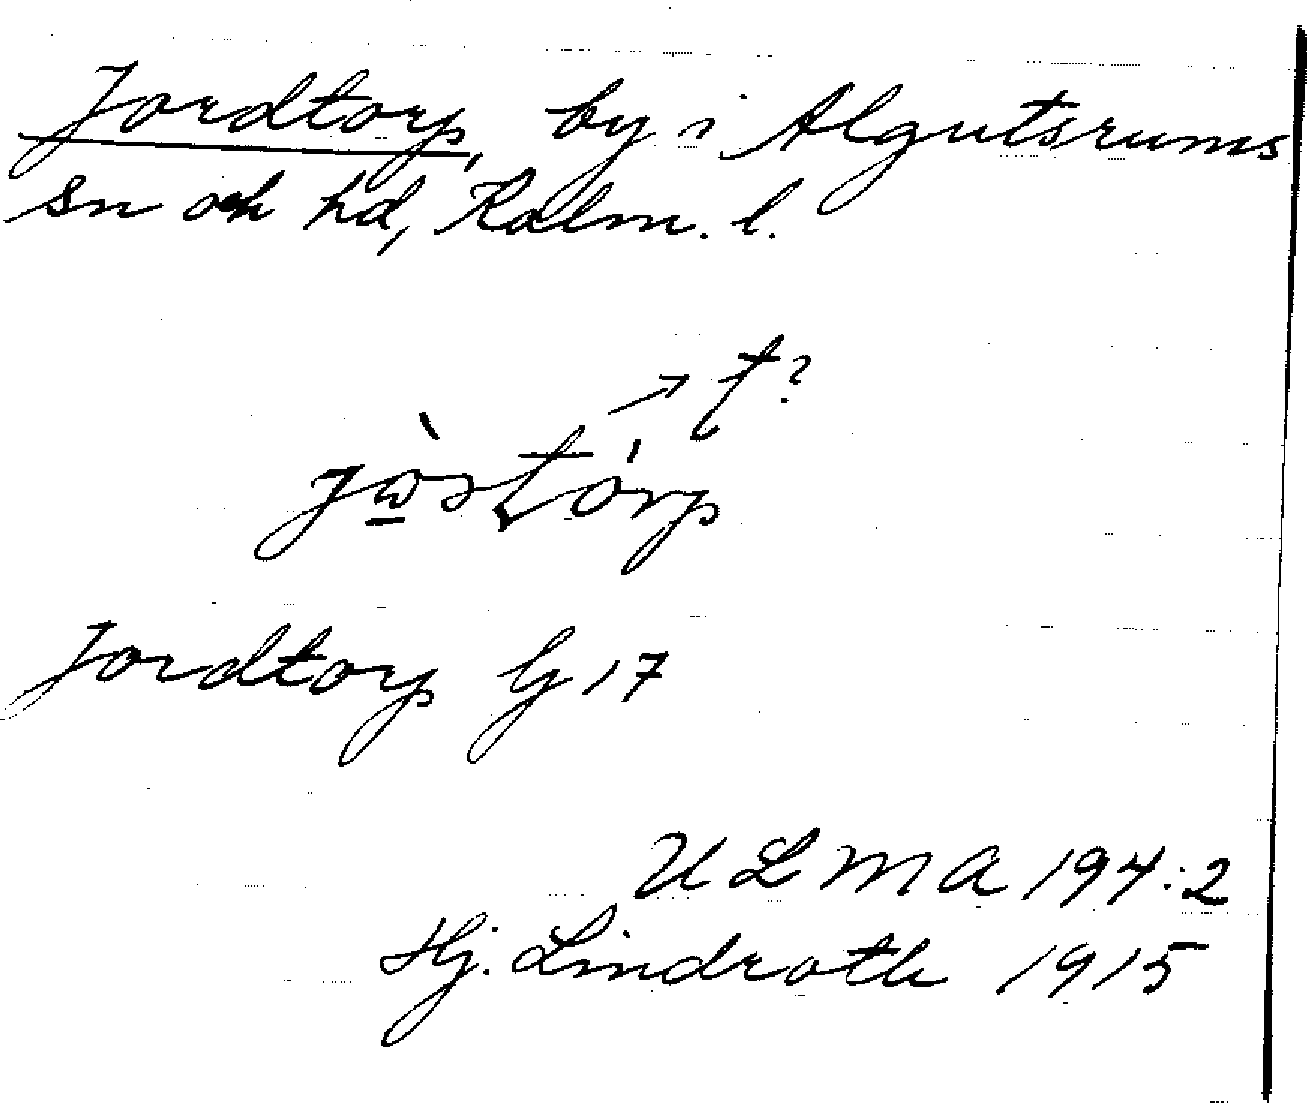 Jordtorp, by i Algutsrums
sn och hd, Kalm. l.
→ t?
Jordtorp G 17
ULMA 194:2
Hj. Lindroth 1915